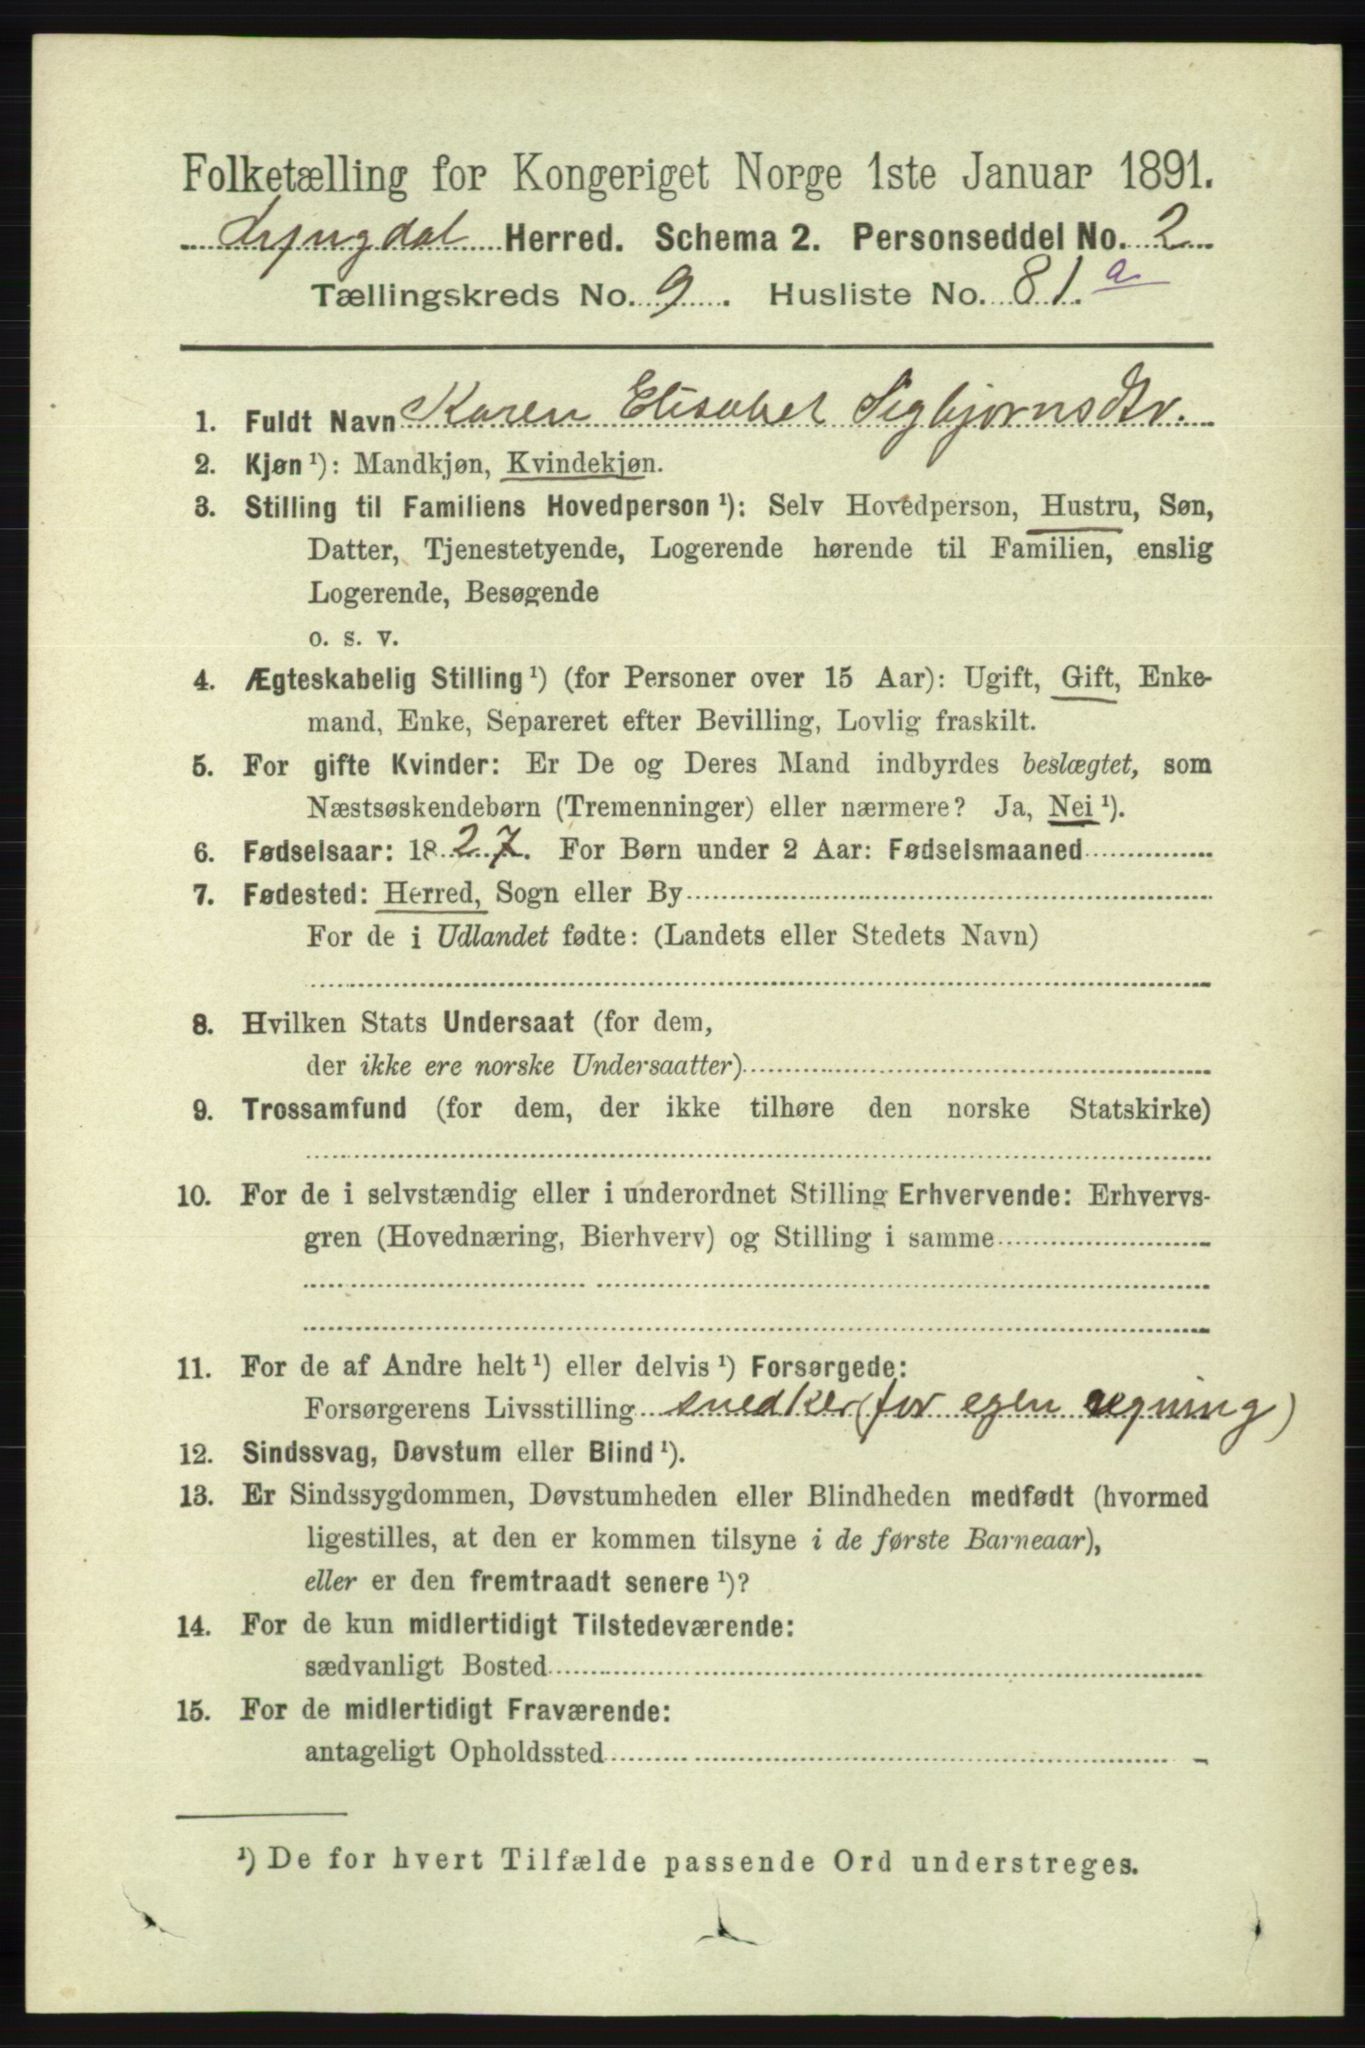 Folketælling for Kongeriget Norge 1ste Januar 1891.
Lyngdal Herred. Schema 2. Personseddel No. 2
Tællingskreds No. 9. Husliste No. 81.a
1. Fuldt Navn Karen Elisabet Sigbjørnsdtr.
2. Kjøn ¹): Mandkjøn, Kvindekjøn.
3. Stilling til Familiens Hovedperson ¹): Selv Hovedperson, Hustru, Søn,
Datter, Tjenestetyende, Logerende hørende til Familien, enslig
Logerende, Besøgende
o. s. v.
4. Ægteskabelig Stilling ¹) (for Personer over 15 Aar): Ugift, Gift, Enke-
mand, Enke, Separeret efter Bevilling, Lovlig fraskilt.
5. For gifte Kvinder: Er De og Deres Mand indbyrdes beslægtet, som
Næstsøskendebørn (Tremenninger) eller nærmere? Ja, Nei ¹).
6. Fødselsaar: 1827. For Børn under 2 Aar: Fødselsmaaned
7. Fødested: Herred, Sogn eller By
For de i Udlandet fødte: (Landets eller Stedets Navn)
8. Hvilken Stats Undersaat (for dem,
der ikke ere norske Undersaatter)
9. Trossamfund (for dem, der ikke tilhøre den norske Statskirke)
10. For de i selvstændig eller i underordnet Stilling Erhvervende: Erhvervs-
gren (Hovednæring, Bierhverv) og Stilling i samme
11. For de af Andre helt ¹) eller delvis ¹) Forsørgede:
Forsørgerens Livsstilling snedker (for egen regning)
12. Sindssvag, Døvstum eller Blind ¹).
13. Er Sindssygdommen, Døvstumheden eller Blindheden medfødt (hvormed
ligestilles, at den er kommen tilsyne i de første Barneaar),
eller er den fremtraadt senere ¹)?
14. For de kun midlertidigt Tilstedeværende:
sædvanligt Bosted
15. For de midlertidigt Fraværende:
antageligt Opholdssted
¹) De for hvert Tilfælde passende Ord understreges.